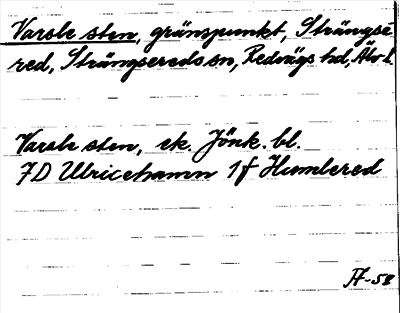 Varsle sten, gränspunkt, Strängse-
red, Strängseredssn, Redvägs hd, Älv-l.
Varsle sten, ek. Jönk. bl.
7D Ulricehamn 1f Humlered